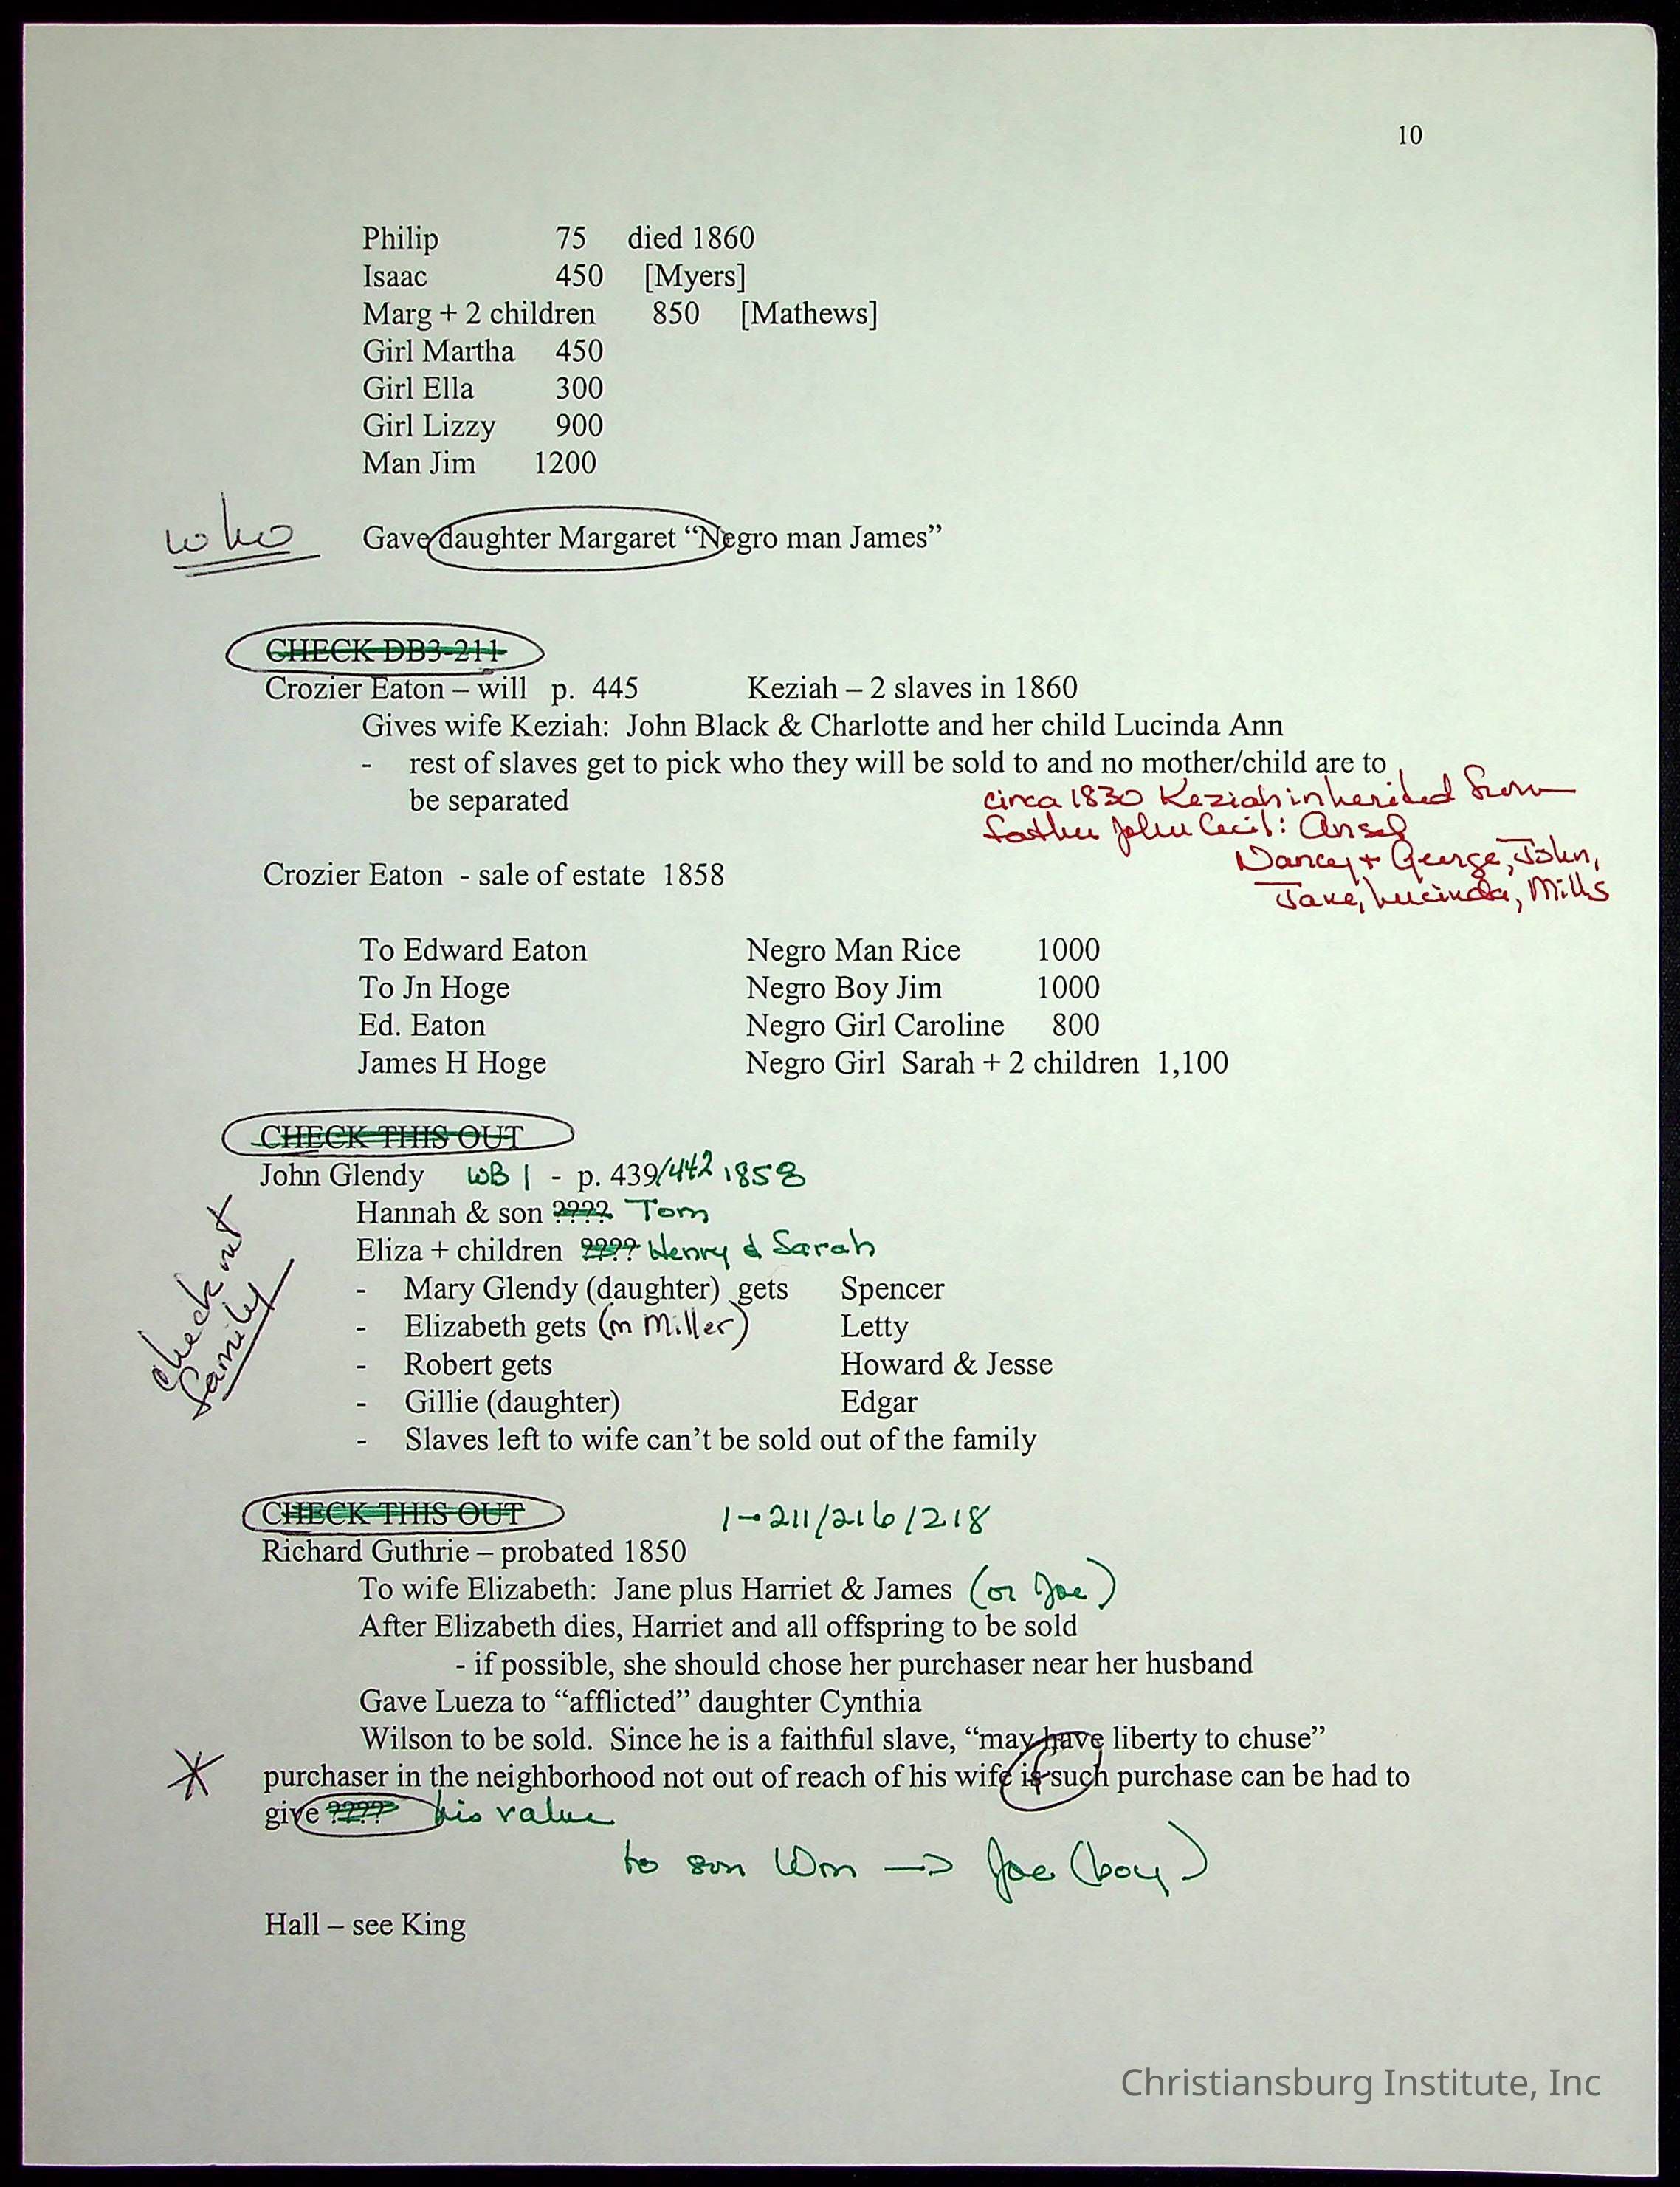 10
Philip 75 died 1860
Isaac 450 [Myers]
Marg + 2 children 850 [Mathews]
Girl Martha 450
Girl Ella 300
Girl Lizzy 900
Man Jim 1200
who Gave daughter Margaret “Negro man James”
CHECK DB3-211
Crozier Eaton – will p. 445 Keziah – 2 slaves in 1860
Gives wife Keziah: John Black & Charlotte and her child Lucinda Ann
- rest of slaves get to pick who they will be sold to and no mother/child are to
be separated
circa 1830 Keziah inherited from
father John Cecil: Ansel
Nancy + George, John,
Jane, Lucinda, Mills
Crozier Eaton - sale of estate 1858
To Edward Eaton Negro Man Rice 1000
To Jn Hoge Negro Boy Jim 1000
Ed. Eaton Negro Girl Caroline 800
James H Hoge Negro Girl Sarah + 2 children 1,100
CHECK THIS OUT
John Glendy WB 1 - p. 439/442 1858
Hannah & son ???? Tom
Eliza + children ???? Henry & Sarah
check out
family
- Mary Glendy (daughter) gets Spencer
- Elizabeth gets (m Miller) Letty
- Robert gets Howard & Jesse
- Gillie (daughter) Edgar
- Slaves left to wife can’t be sold out of the family
CHECK THIS OUT 1-211/216/218
Richard Guthrie – probated 1850
To wife Elizabeth: Jane plus Harriet & James (or Joe)
After Elizabeth dies, Harriet and all offspring to be sold
- if possible, she should chose her purchaser near her husband
Gave Lueza to “afflicted” daughter Cynthia
Wilson to be sold. Since he is a faithful slave, “may have liberty to chuse”
purchaser in the neighborhood not out of reach of his wife if such purchase can be had to
give ???? his value
to son Wm → Joe (boy)
Hall – see King
Christiansburg Institute, Inc